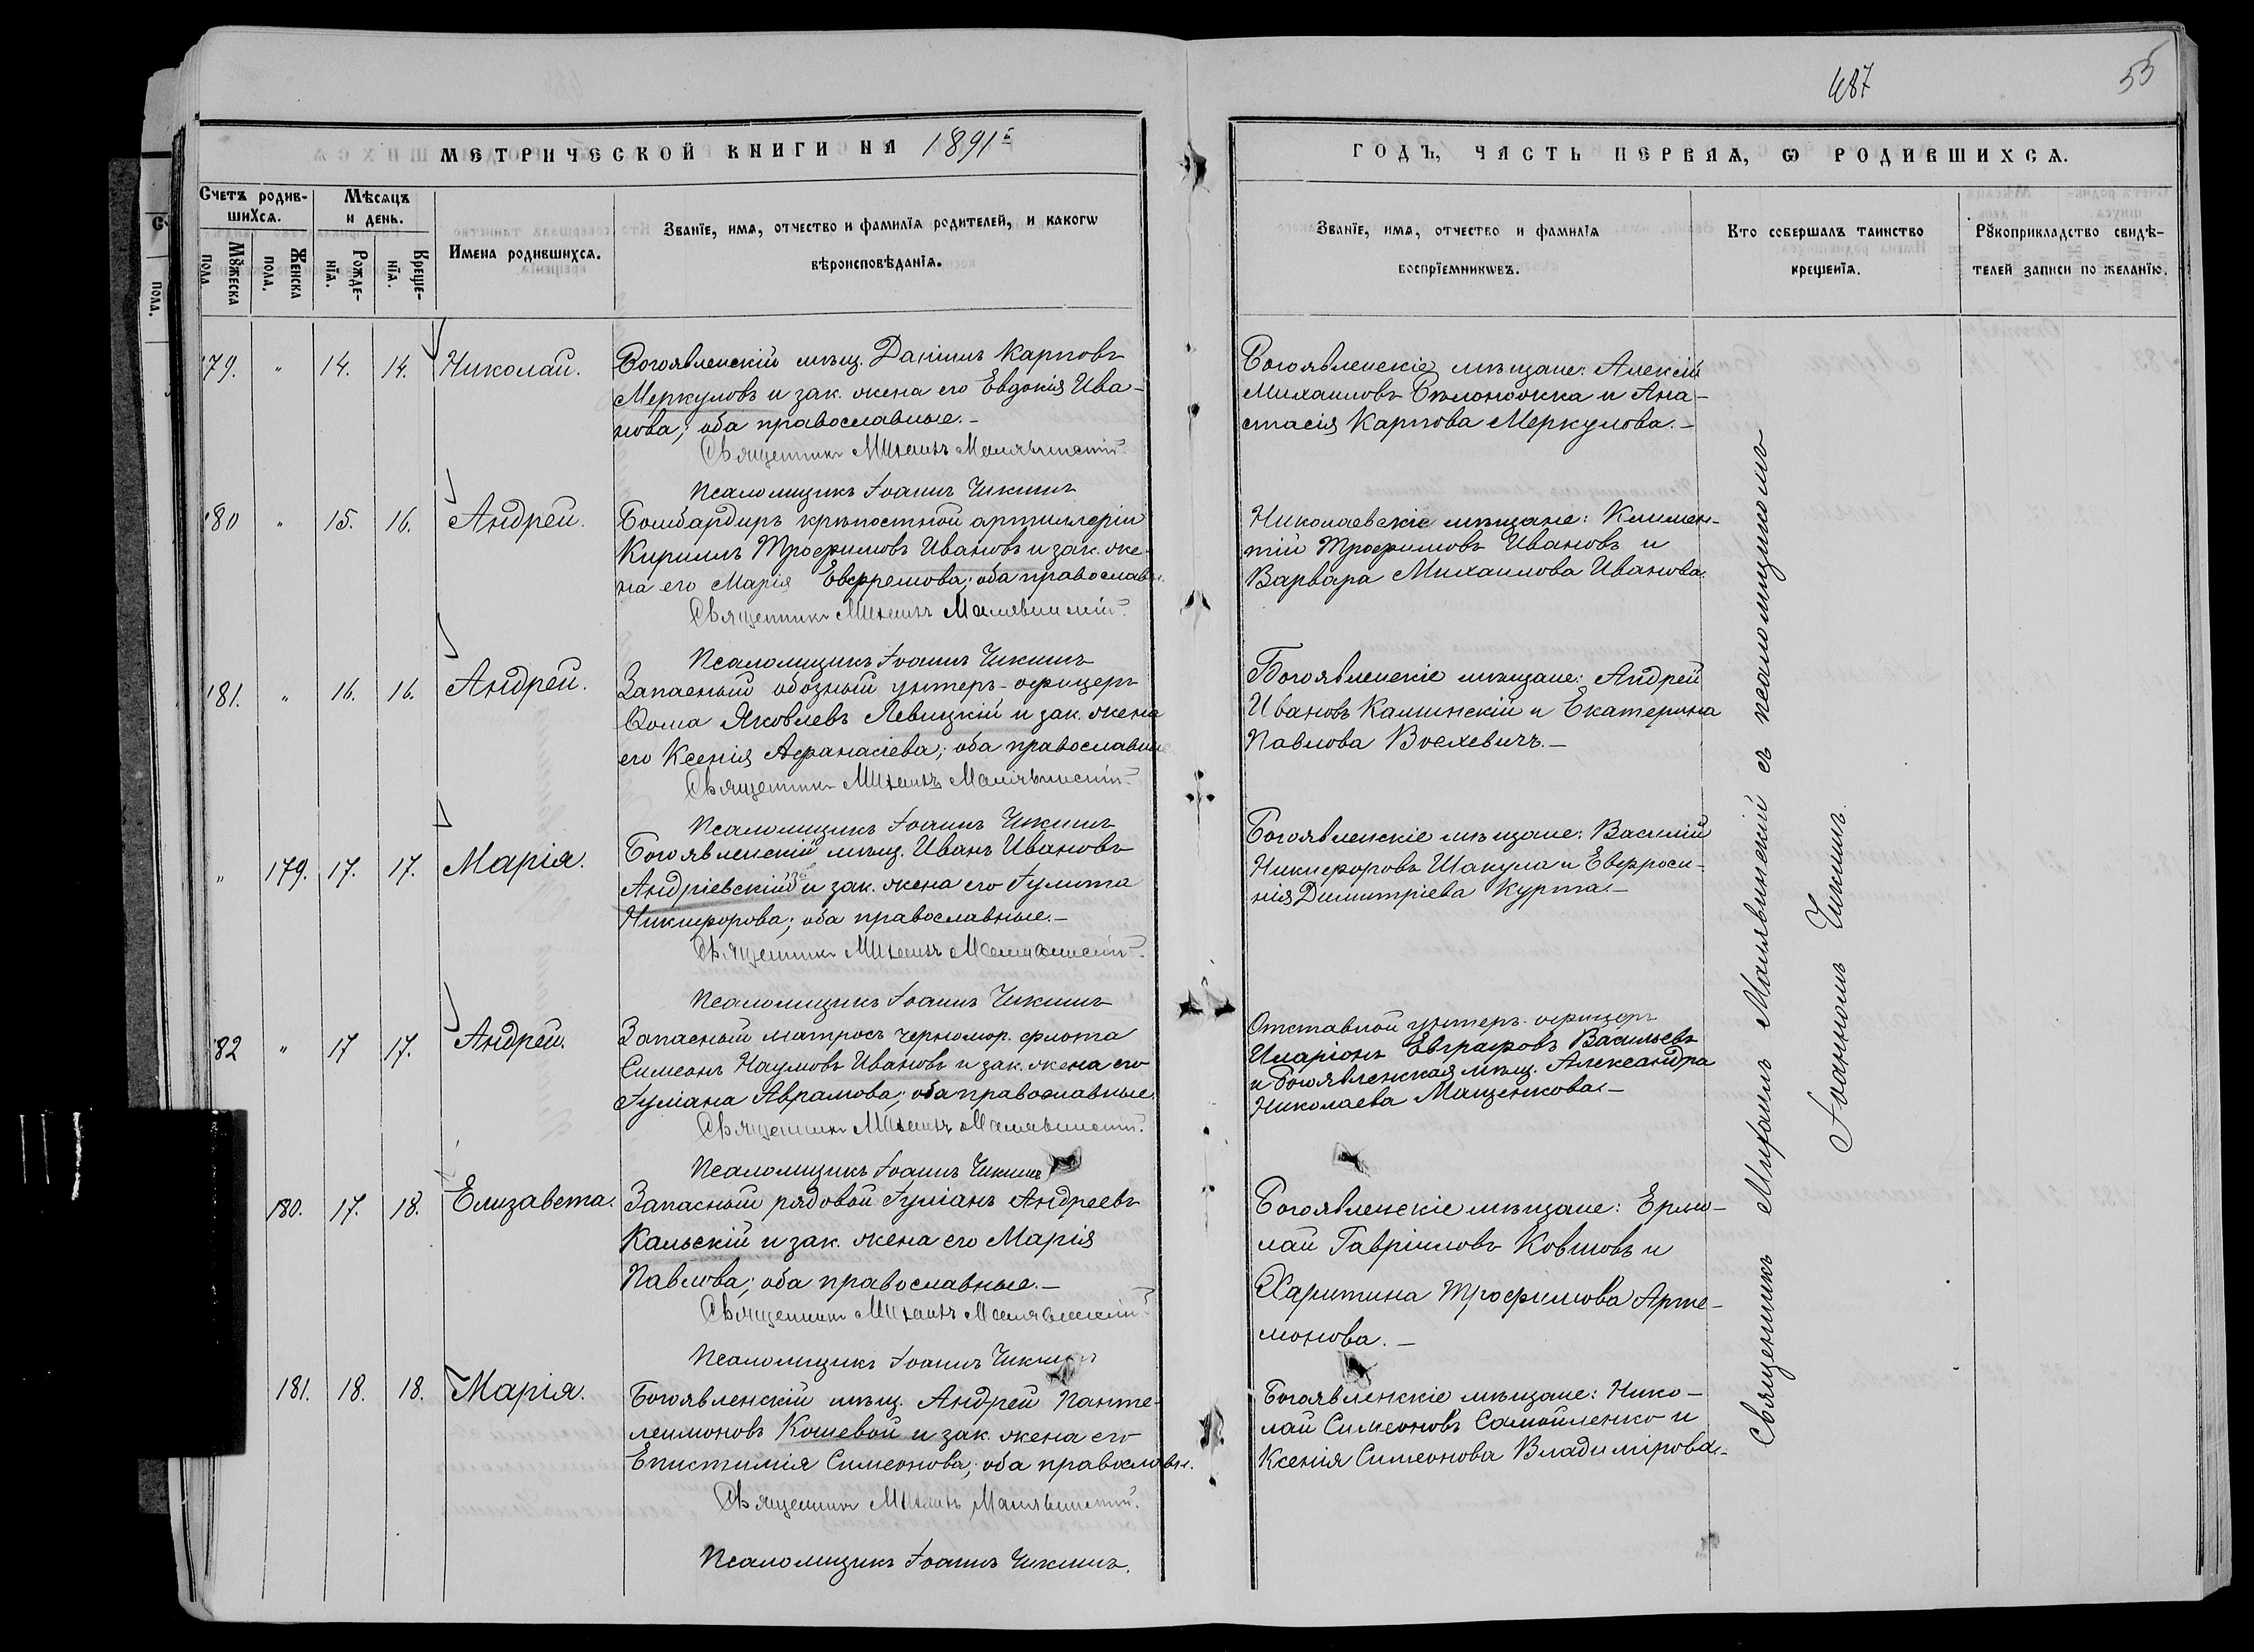 487
55
МЕТРИЧЕСКОЙ КНИГИ НА 1891й
ГОДЪ, ЧАСТЬ ПЕРВАЯ, Ѡ РОДИВШИХСѦ.
Счетъ родив-
шиХсѧ.
Мѣсѧцъ
и день.
Имена родившихсѧ.
Званїе, имѧ, отчество и фамилїя родителей, и какогѡ
вѣроисповѣданїѧ.
Мꙋжеска
пола
Женска
пола.
Рожде-
нїѧ.
Креще-
нїѧ.
Званїе, имѧ, отчество и фамилїѧ
воспрїемникѡвъ.
Кто совершалъ таинство
крещенїѧ.
Рꙋкоприкладство свидѣ-
телей записи по желанїю.
179. " 14. 14. Николай. Богоявленскій мѣщ. Даніилъ Карповъ
Меркуловъ и зак. жена его Евдокія Ива-
нова; оба православные.-
Священникъ Михаилъ Малявинскій
Псаломщикъ Іоаннъ Чикинъ
Богоявленскіе мѣщане: Алексій
Михаиловъ Бѣлоножка и Ана-
стасія Карпова Меркулова.-
180 " 15. 16. Андрей. Бомбардиръ крѣпостной артиллеріи
Кириллъ Трофимовъ Ивановъ и зак. же-
на его Марія Евфремова; оба православн.
Священникъ Михаилъ Малявинскій.
Псаломщикъ Іоаннъ Чикинъ
Николаевскіе мѣщане: Климен-
тій Трофимовъ Ивановъ и
Варвара Михаилова Иванова.
181. " 16. 16. Андрей. Запасный обозный унтеръ-офицеръ
Ѳома Яковлевъ Левицкій и зак. жена
его Ксенія Афанасіева; оба православные
Священникъ Михаилъ Малявинскій.
Псаломщикъ Іоаннъ Чикинъ
Богоявленскіе мѣщане: Андрей
Ивановъ Калинскій и Екатерина
Павлова Воехевичъ.-
" 179. 17. 17. Марія. Богоявленскій мѣщ. Иванъ Ивановъ
Андріевскій и зак. жена его Іулита
Никифорова; оба православные.-
Священникъ Михаилъ Малявинскій.
Псаломщикъ Іоаннъ Чикинъ
Богоявленскіе мѣщане: Василій
Никифоровъ Шакула и Евфроси-
нія Димитріева Курта.-
182 " 17 17. Андрей. Запасный матросъ черномор. флота
Симеонъ Наумовъ Ивановъ и зак. жена его
Іуліана Аврамова; оба православные.
Священникъ Михаилъ Малявинскій.
Псаломщикъ Іоаннъ Чикинъ
Отставной унтеръ-офицеръ
Иларіонъ Евграфовъ Васильевъ
и Богоявленская мѣщ. Александра
Николаева Мащенкова.-
180. 17. 18. Елизавета. Запасный рядовой Іуліанъ Андреевъ
Кальскій и зак. жена его Марія
Павлова; оба православные.-
Священникъ Михаилъ Малявинскій
Псаломщикъ Іоаннъ Чикинъ
Богоявленскіе мѣщане: Ермо-
лай Гавріиловъ Ковшовъ и
Харитина Трофимова Арте-
монова.-
181. 18. 18. Марія. Богоявленскій мѣщ. Андрей Панте-
леимоновъ Кошевой и зак. жена его
Епистимія Симеонова; оба православн.
Священникъ Михаилъ Малявинскій.
Псаломщикъ Іоаннъ Чикинъ.
Богоявленскіе мѣщане: Нико-
лай Симеоновъ Самойленко и
Ксенія Симеонова Владимірова.-
Священникъ Михаилъ Малявинскій съ псаломщикомъ
Іоанномъ Чикинъ.